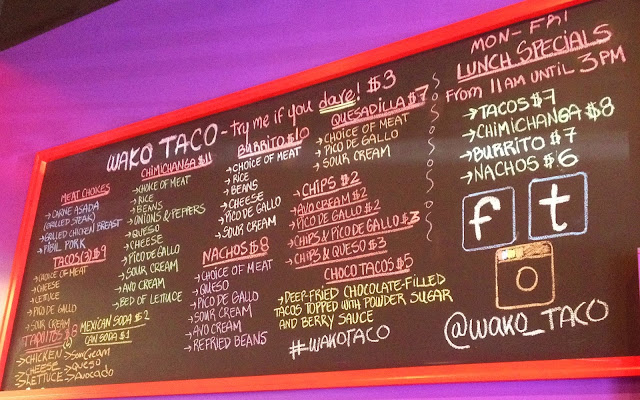 WAKO TACO - try me if you dare! $3
MEAT CHOICES
→ CARNE ASADA
(GRILLED STEAK)
→ GRILLED CHICKEN BREAST
→ PIBIL PORK
TACOS(3) $9
→ CHOICE OF MEAT
→ CHEESE
→ LETTUCE
→ PICO DE GALLO
→ SOUR CREAM
TAQUITOS $8
→ CHICKEN
→ CHEESE
→ LETTUCE
→ Sour Cream
→ Queso
→ Avocado
MEXICAN SODA $2
CAN SODA $1
CHIMICHANGA $11
→ CHOICE OF MEAT
→ RICE
→ BEANS
→ ONIONS & PEPPERS
→ QUESO
→ CHEESE
→ PICO DE GALLO
→ SOUR CREAM
→ AVO CREAM
→ BED OF LETTUCE
BURRITO $10
→ CHOICE OF MEAT
→ RICE
→ BEANS
→ CHEESE
→ PICO DE GALLO
→ SOUR CREAM
NACHOS $8
→ CHOICE OF MEAT
→ QUESO
→ PICO DE GALLO
→ SOUR CREAM
→ AVO CREAM
→ REFRIED BEANS
QUESADILLA $7
→ CHOICE OF MEAT
→ PICO DE GALLO
→ SOUR CREAM
→ CHIPS $2
→ AVO CREAM $2
→ PICO DE GALLO $2
→ CHIPS & PICO DE GALLO $3
→ CHIPS & QUESO $3
CHOCO TACOS $5
→ DEEP-FRIED CHOCOLATE-FILLED
TACOS TOPPED WITH POWDER SUGAR
AND BERRY SAUCE
#WAKOTACO
MON-FRI
LUNCH SPECIALS
From 11AM UNTIL 3PM
→ TACOS $7
→ CHIMICHANGA $8
→ BURRITO $7
→ NACHOS $6
f t
@WAKO_TACO